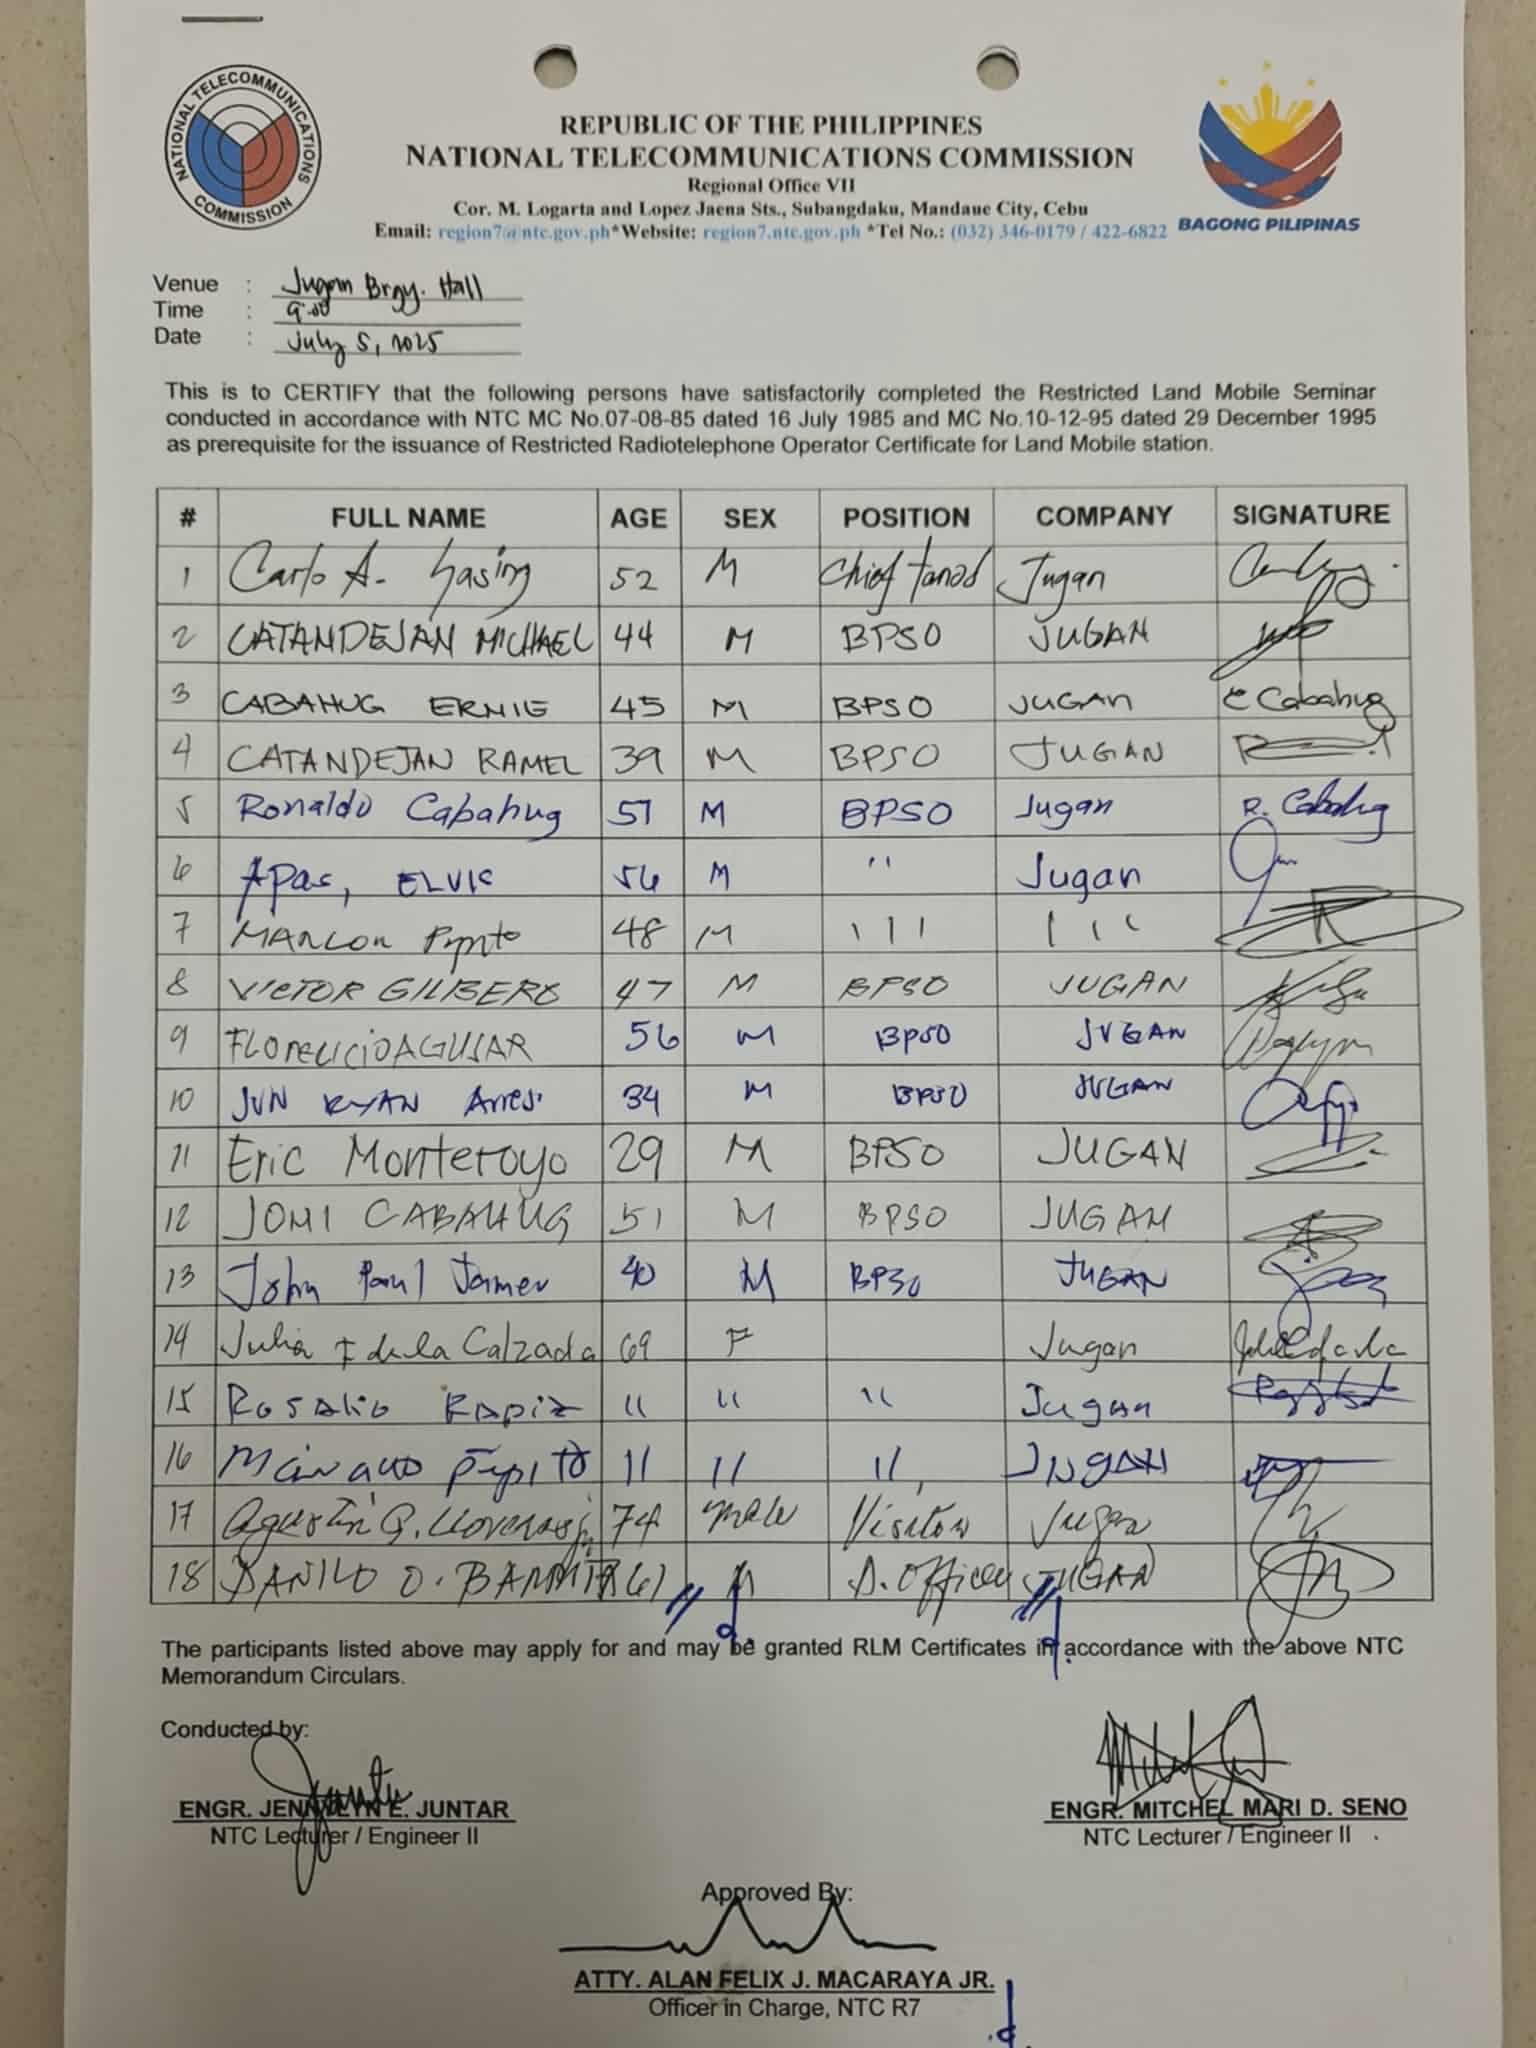 NATIONAL TELECOMMUNICATIONS COMMISSION
BAGONG PILIPINAS
REPUBLIC OF THE PHILIPPINES
NATIONAL TELECOMMUNICATIONS COMMISSION
Regional Office VII
Cor. M. Logarta and Lopez Jaena Sts., Subangdaku, Mandaue City, Cebu
Email: region7@ntc.gov.ph*Website: region7.ntc.gov.ph *Tel No.: (032) 346-0179 / 422-6822
Venue : Jugan Brgy. Hall
Time : 9:00
Date : July 5, 2025
This is to CERTIFY that the following persons have satisfactorily completed the Restricted Land Mobile Seminar
conducted in accordance with NTC MC No.07-08-85 dated 16 July 1985 and MC No.10-12-95 dated 29 December 1995
as prerequisite for the issuance of Restricted Radiotelephone Operator Certificate for Land Mobile station.
# FULL NAME AGE SEX POSITION COMPANY SIGNATURE
1 Carlo A. 52 M Chief Tanod Jugan
2 CATANDEJAN MICHAEL 44 M BPSO JUGAN
3 CABAHUG ERNIE 45 M BPSO JUGAN E Cabahug
4 CATANDEJAN RAMEL 39 M BPSO JUGAN
5 Ronaldo Cabahug 57 M BPSO Jugan R. Cabahug
6 Apas, ELVIS 56 M " Jugan
7 MARLON 48 M ' ' ' ' ' '
8 VICTOR GILBERO 47 M BPSO JUGAN
9 AGUILAR 56 M BPSO JUGAN
10 JUN RYAN 34 M BPSO JUGAN
11 Eric Monteroyo 29 M BPSO JUGAN
12 JOMI CABAHUG 51 M BPSO JUGAN
13 John Paul 40 M BPSO JUGAN
14 Julia F dela Calzada 69 F Jugan
15 Rosalio " " " Jugan
16 Pepito " " " JUGAN
17 Agustin G. 74 male Visitor Jugan
18 DANILO O. 61 M D. Officer JUGAN
The participants listed above may apply for and may be granted RLM Certificates in accordance with the above NTC
Memorandum Circulars.
Conducted by:
ENGR. JENNALYN E. JUNTAR
NTC Lecturer / Engineer II
ENGR. MITCHEL MARI D. SENO
NTC Lecturer / Engineer II
Approved By:
ATTY. ALAN FELIX J. MACARAYA JR.
Officer in Charge, NTC R7